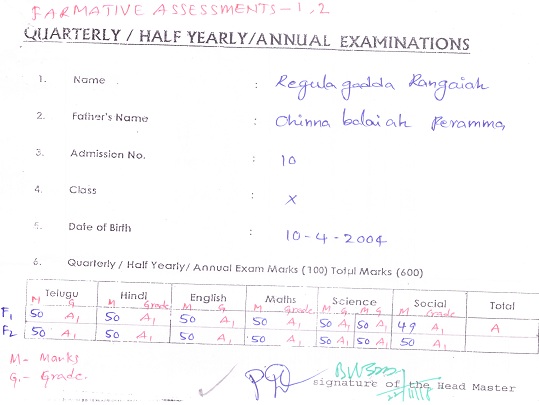 FARMATIVE ASSESSMENTS-1,2
QUARTERLY / HALF YEARLY/ANNUAL EXAMINATIONS
1. Name : Regulagadda Rangaiah
2. Father's Name : Chinna balaiah Peramma,
3. Admission No. : 10
4. Class : X
5. Date of Birth : 10-4-2004
6. Quarterly / Half Yearly/ Annual Exam Marks (100) Total Marks (600)
Telugu Hindi English Maths Science Social Total
M G M Grade M G M Grade M G M G M Grade
F1 50 A1 50 A1 50 A1 50 A1 50 A1 50 A1 49 A1 A
F2 50 A1 50 A1 50 A1 50 A1 50 A1 50 A1 50 A1
M- Marks
G- Grade.
signature of the Head Master